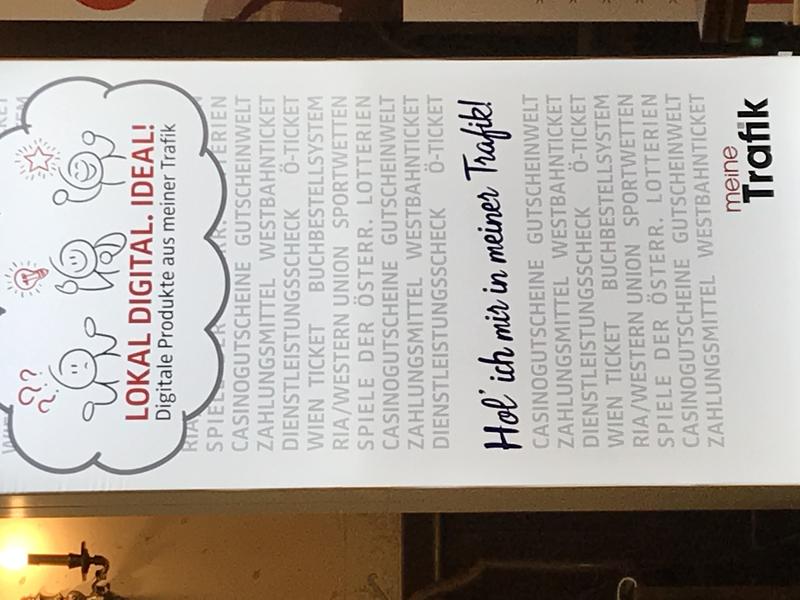 ??
LOKAL DIGITAL. IDEAL!
Digitale Produkte aus meiner Trafik
CASINOGUTSCHEINE GUTSCHEINWELT
ZAHLUNGSMITTEL WESTBAHNTICKET
DIENSTLEISTUNGSSCHECK Ö-TICKET
WIEN TICKET BUCHBESTELLSYSTEM
RIA/WESTERN UNION SPORTWETTEN
SPIELE DER ÖSTERR. LOTTERIEN
CASINOGUTSCHEINE GUTSCHEINWELT
ZAHLUNGSMITTEL WESTBAHNTICKET
DIENSTLEISTUNGSSCHECK Ö-TICKET
Hol' ich mir in meiner Trafik!
CASINOGUTSCHEINE GUTSCHEINWELT
ZAHLUNGSMITTEL WESTBAHNTICKET
DIENSTLEISTUNGSSCHECK Ö-TICKET
WIEN TICKET BUCHBESTELLSYSTEM
RIA/WESTERN UNION SPORTWETTEN
SPIELE DER ÖSTERR. LOTTERIEN
CASINOGUTSCHEINE GUTSCHEINWELT
ZAHLUNGSMITTEL WESTBAHNTICKET
meine
Trafik